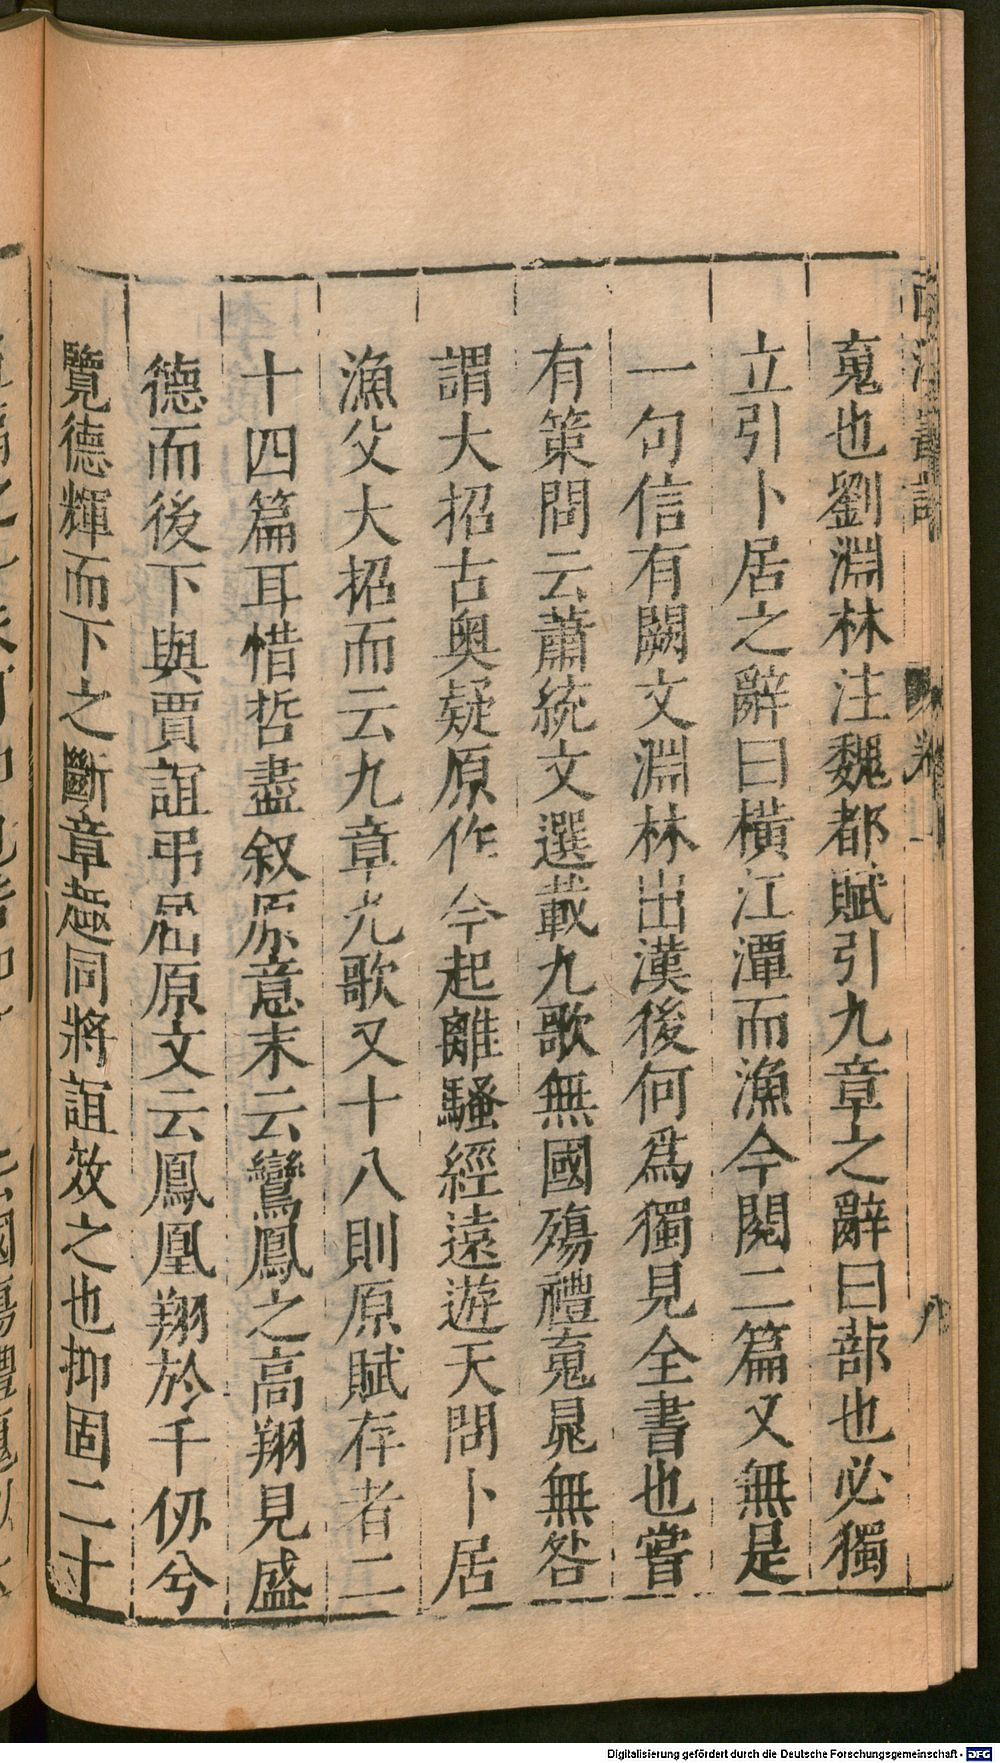 蒐也劉淵林注魏都賦引九章之辭曰蔀也必獨
立引卜居之辭曰橫江潭而漁今閱二篇又無是
一句信有闕文淵林出漢後何爲獨見全書也嘗
有策問云蕭統文選載九歌無國殤禮䰟晁無咎
謂大招古奥疑原作今起離騷經遠遊天問卜居
漁父大招而云九章九歌又十八則原賦存者二
十四篇耳惜哲盡叙原意末云鸞鳳之高翔見盛
德而後下與賈誼弔屈原文云鳳凰翔於千仭兮
覽德輝而下之斷章趣同將誼效之也抑固二十
Digitalisierung gefördert durch die Deutsche Forschungsgemeinschaft - DFG